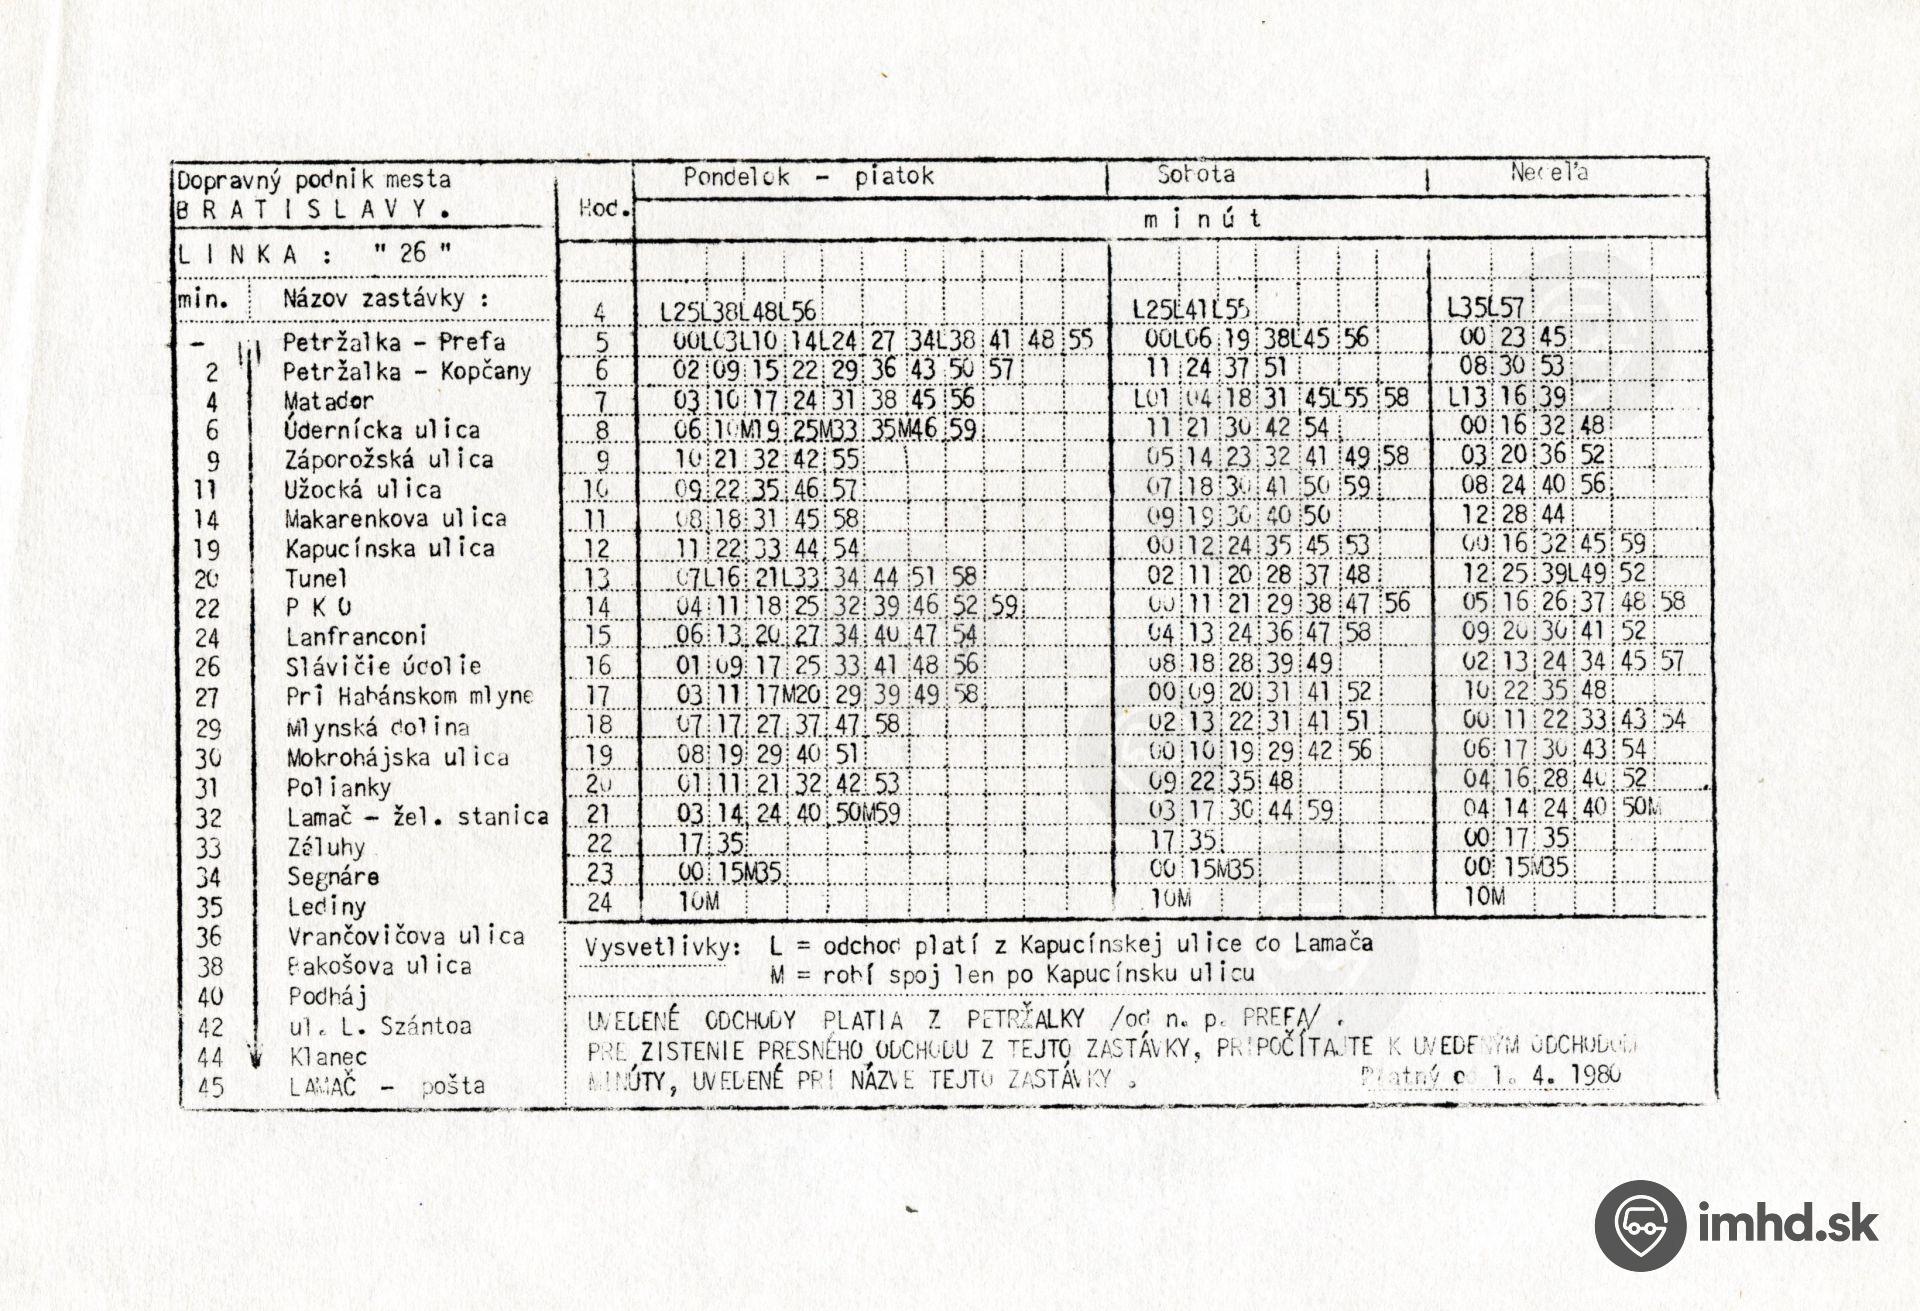 Dopravný podnik mesta
BRATISLAVY.
LINKA : " 26 "
min. Názov zastávky :
- Petržalka - Prefa
2 Petržalka - Kopčany
4 Matador
6 Údernícka ulica
9 Záporožská ulica
11 Užocká ulica
14 Makarenkova ulica
19 Kapucínska ulica
20 Tunel
22 P K O
24 Lanfranconi
26 Slávičie údolie
27 Pri Habánskom mlyne
29 Mlynská dolina
30 Mokrohájska ulica
31 Polianky
32 Lamač - žel. stanica
33 Záluhy
34 Segnáre
35 Lediny
36 Vrančovičova ulica
38 Bakošova ulica
40 Podháj
42 ul. L. Szántoa
44 Klanec
45 LAMAČ - pošta
Hod. Pondelok - piatok Sobota Nedeľa
minút
4 L25L38L48L56 L25L41L55 L35L57
5 00L03L10 14L24 27 34L38 41 48 55 00L06 19 38L45 56 00 23 45
6 02 09 15 22 29 36 43 50 57 11 24 37 51 08 30 53
7 03 10 17 24 31 38 45 56 L01 04 18 31 45L55 58 L13 16 39
8 06 10M19 25M33 35M46 59 11 21 30 42 54 00 16 32 48
9 10 21 32 42 55 05 14 23 32 41 49 58 03 20 36 52
10 09 22 35 46 57 07 18 30 41 50 59 08 24 40 56
11 08 18 31 45 58 09 19 30 40 50 12 28 44
12 11 22 33 44 54 00 12 24 35 45 53 00 16 32 45 59
13 07L16 21L33 34 44 51 58 02 11 20 28 37 48 12 25 39L49 52
14 04 11 18 25 32 39 46 52 59 00 11 21 29 38 47 56 05 16 26 37 48 58
15 06 13 20 27 34 40 47 54 04 13 24 36 47 58 09 20 30 41 52
16 01 09 17 25 33 41 48 56 08 18 28 39 49 02 13 24 34 45 57
17 03 11 17M20 29 39 49 58 00 09 20 31 41 52 10 22 35 48
18 07 17 27 37 47 58 02 13 22 31 41 51 00 11 22 33 43 54
19 08 19 29 40 51 00 10 19 29 42 56 06 17 30 43 54
20 01 11 21 32 42 53 09 22 35 48 04 16 28 40 52
21 03 14 24 40 50M59 03 17 30 44 59 04 14 24 40 50M
22 17 35 17 35 00 17 35
23 00 15M35 00 15M35 00 15M35
24 10M 10M 10M
Vysvetlivky: L = odchod platí z Kapucínskej ulice do Lamača
M = robí spoj len po Kapucínsku ulicu
UVEDENÉ ODCHODY PLATIA Z PETRŽALKY /od n. p. PREFA/ .
PRE ZISTENIE PRESNÉHO ODCHODU Z TEJTO ZASTÁVKY, PRIPOČÍTAJTE K UVEDENÝM ODCHODOM
MINÚTY, UVEDENÉ PRI NÁZVE TEJTO ZASTÁVKY .
Platný od 1. 4. 1980
imhd.sk